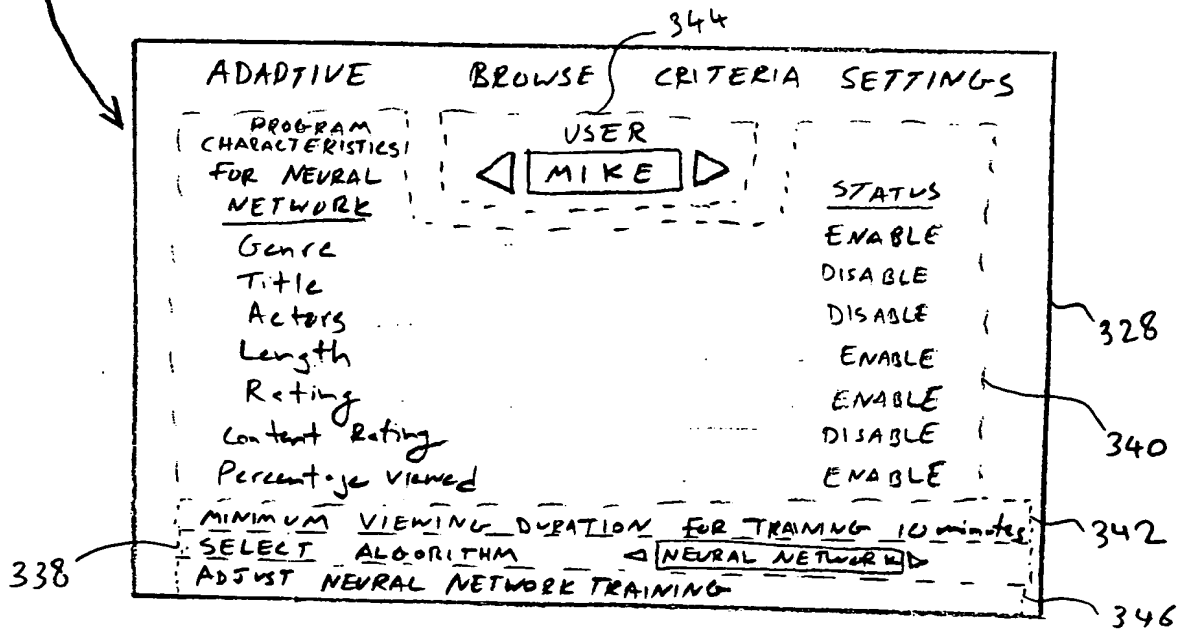 344
ADAPTIVE BROWSE CRITERIA SETTINGS
PROGRAM
CHARACTERISTICS
FOR NEURAL
NETWORK
USER
MIKE
STATUS
Genre ENABLE
Title DISABLE
Actors DISABLE
328
Length ENABLE
Rating ENABLE
340
Content Rating DISABLE
Percentage viewed ENABLE
MINIMUM VIEWING DURATION FOR TRAINING 10 minutes
342
338
SELECT ALGORITHM NEURAL NETWORK
ADJUST NEURAL NETWORK TRAINING
346